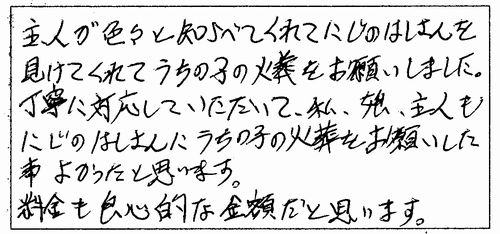 主人が色々と知らべてくれてにじのはしさんを
見けてくれてうちの子の火葬をお願いしました。
丁寧に対応していただいて、私、娘、主人も
にじのはしさんにうちの子の火葬をお願いした
事よかったと思います。
料金も良心的な金額だと思います。